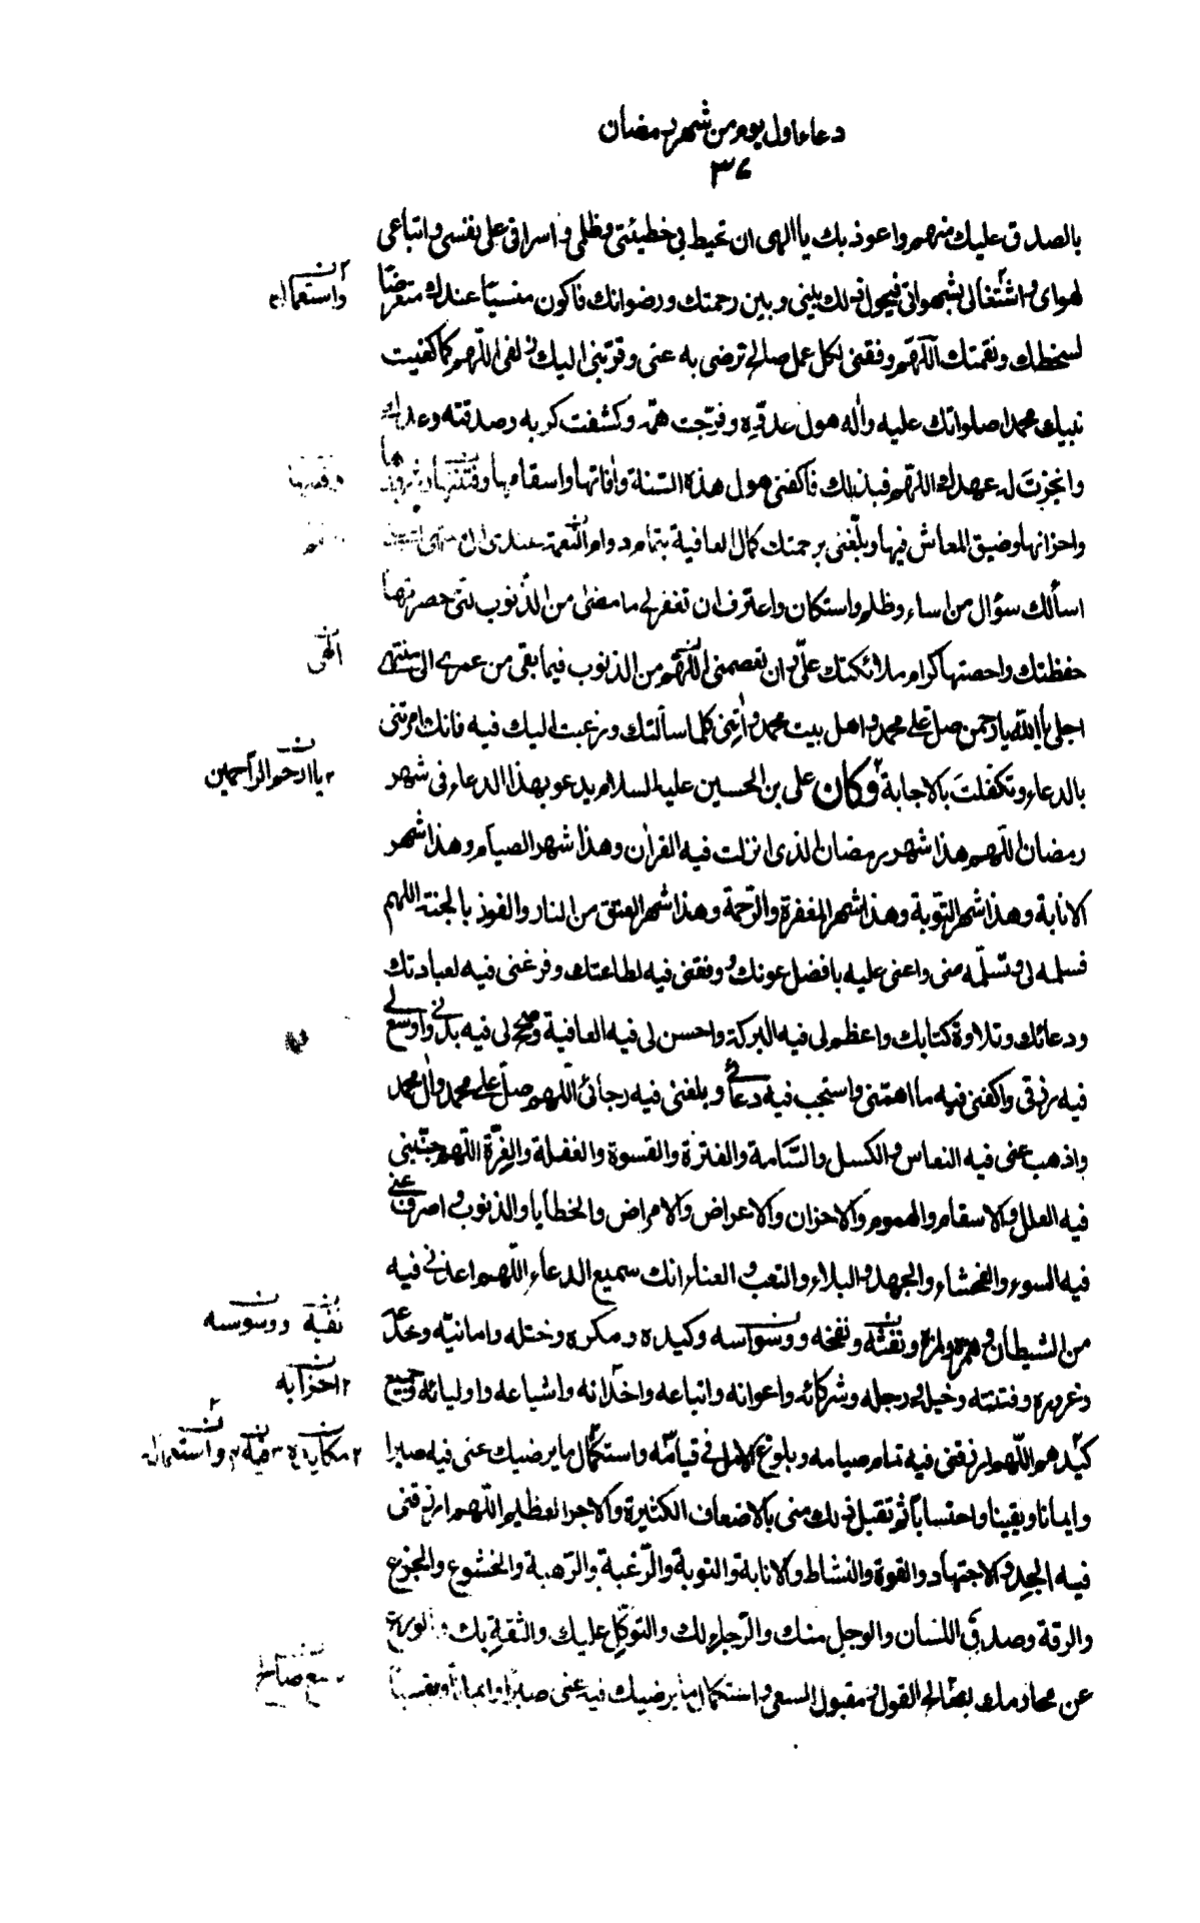 دعاء اول يوم من شهر رمضان
٣٧
بالصدق عليك منهم واعوذ بك يا الهى ان تحيط بى خطيئتى وظلمى واسرافى على نفسى واتباعى
لهواى واشتغالى بشهواتى فيحول ذلك بينى وبين رحمتك ورضوانك فاكون منسيّا عندك متعرضّا
واستعمالى
لسخطك ونقمتك اللّهمّ وفقنى لكل عمل صالح ترضى به عنى وقرّبنى اليك زلفى اللّهم كما كفيت
نبيك محمدا صلواتك عليه واله هول عدوّه وفرّجت همّه وكشفت كربه وصدقته وعدك
وانجزت له عهدك اللهّم فبذلك فاكفنى هول هذه السّنة وافاتها واسقامها وفتنتها وشرورها
واحزانها وضيق المعاش فيها وبلّغنى برحمتك كمال العافية بتمام دوام النّعمة عندى الى منتهى
اسألك سؤال من اساء وظلم واستكان واعترف ان تغفر لى ما مضى من الذّنوب التى حصرتها
حفظتك واحصتها كرام ملائكتك علىّ وان تعصمنى اللّهمّ من الذنوب فيما بقى من عمرى الى منتهى
الهى
اجلى يا الله يا رحمن صل على محمد واهل بيت محمد واتنى كلما سألتك ورغبت اليك فيه فانك امرتنى
بالدعاء وتكفّلتَ بالاجابة وكان على بن الحسين عليه السلام يدعو بهذا الدعاء فى شهر
يا ارحم الرّاحمين
رمضان اللّهم هذا شهر رمضان الذى انزلت فيه القران وهذا شهر الصيام وهذا شهر
الانابة وهذا شهر التوبة وهذا شهر المغفرة والرّحمة وهذا شهر العتق من النار والفوز بالجنة اللهم
فسلمه لى وتسلّمه منى واعنى عليه بافضل عونك ووفقنى فيه لطاعتك وفرغنى فيه لعبادتك
ودعائك وتلاوة كتابك واعظم لى فيه البركة واحسن لى فيه العافية وصحّ لى فيه بدنى واوسع لى
فيه رزقى واكفنى فيه ما اهمّنى واستجب فيه دعائى وبلغنى فيه رجائى اللّهم صلّ على محمد وال محمد
واذهب عنى فيه النعاس والكسل والسّامة والفترة والقسوة والغفلة والغِرّة اللّهم جنّبنى
فيه العلل والاسقام والهموم والاحزان والاعراض والامراض والخطايا والذنوب واصرف عنى
فيه السوء والفحشاء والجهد والبلاء والتعب والعناء انك سميع الدعاء اللّهم اعذنى فيه
من الشيطان وهمزه ولمزه ونفثه ونفخه ووسواسه وكيده ومكره وختله وامانيّه وخدعه
نفثه ووسوسه
وغروره وفتنته وخيله ورجله وشركائه واعوانه واتباعه واخدانه واشياعه واوليائه وجميع
احزابه
كيدهم اللّهم ارزقنى فيه تمام صيامه وبلوغ الامل فى قيامه واستكمال ما يرضيك عنى فيه صبرا
مكايده
وايمانا ويقينا واحتسابا ثم تقبل ذلك منى بالاضعاف الكثيرة والاجر العظيم اللّهم ارزقنى
فيه الجد والاجتهاد والقوة والنشاط والانابة والتوبة والرّغبة والرّهبة والخشوع والجزع
والرقة وصدق اللسان والوجل منك والرّجاء لك والتوكّل عليك والثقة بك والورع
عن محارمك بصالح القول ومقبول السعى واستكمال ما يرضيك فيه عنى صبرا وايمانا ويقينا